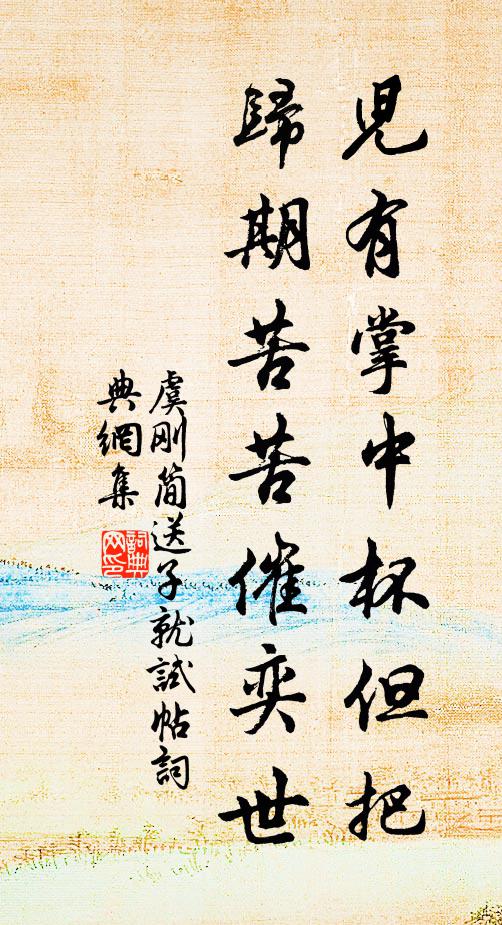 兒有掌中杯但把
歸期苦苦催奕世
虞剛簡送子就試帖詞
典網集
詞典
网印